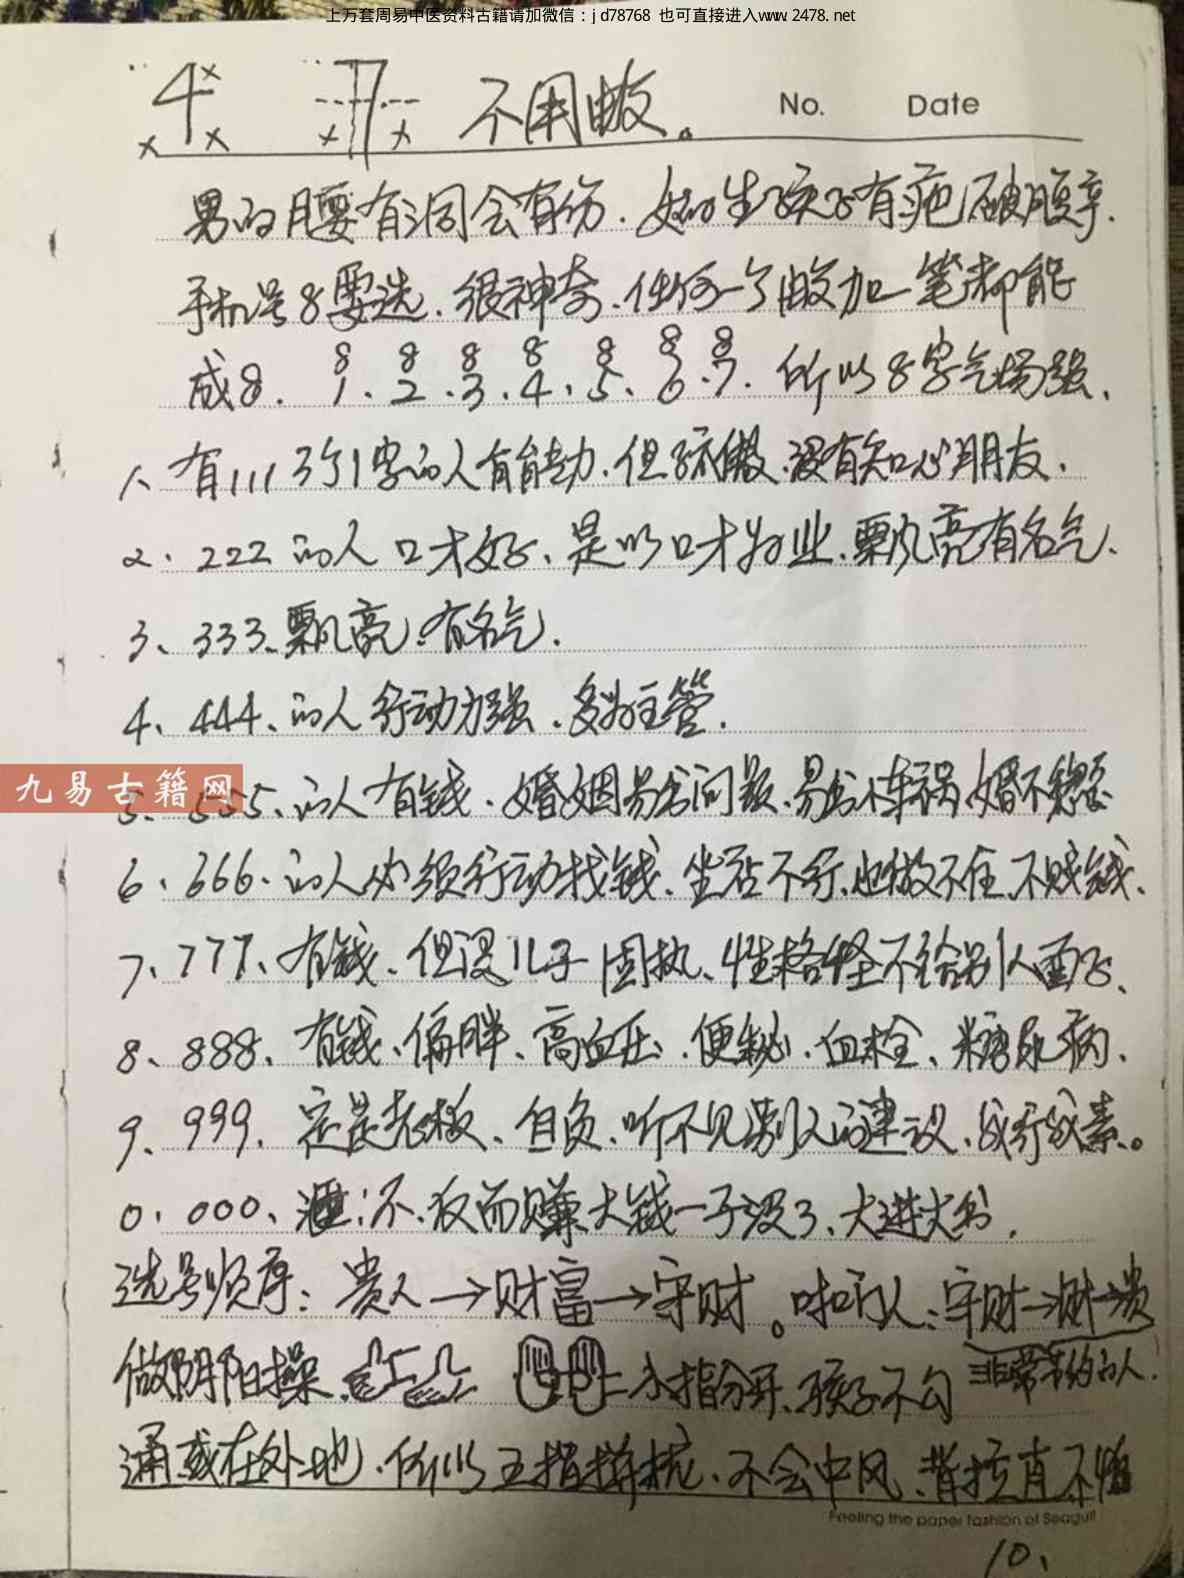 上万套周易中医资料古籍请加微信：jd78768 也可直接进入www.2478.net
4 7 不用做。
No. Date
男的腰有洞会有伤．女的生孩子有疤，破腹产．
手机号8要选．很神奇．任何一个做加一笔都能
成8． 8 8 8 8 8 8 8
1、2、3、4、5、6、7．所以8字气场强、
1、有111 3个1字的人有能力．但孤傲．没有知心朋友．
2、222的人口才好、是以口才为业．飘亮有名气．
3、333、飘亮、有名气．
4、444、的人行动力强．多为主管．
九易古籍网
5、555、的人有钱．婚姻易出问题、易出车祸，婚不稳
6、666、的人必须行动找钱、坐占不行、也做不住 不贱钱、
7、777、有钱、但没儿子 固执、性格怪不给别人面子、
8、888、有钱、偏胖、高血压、便秘、血栓、糖尿病、
9、999、定是老板、自负、听不见别人的建议、我行我素。
0、000、不、夜而赚大钱一子没了、大进大出．
选号顺序：贵人→财富→守财。 人：守财→财→贵
做阴阳操、 小指分开、孩子不勾 非常节约的人．
通或在外地．所以五指 、不会中风、背拉直不
Feeling the paper fashion of Seagull
10、